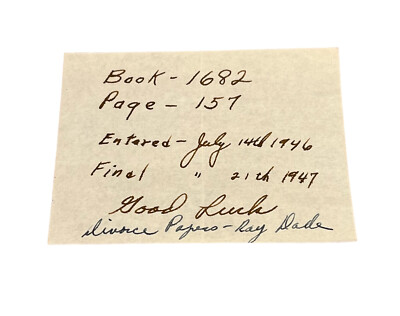 Book - 1682
Page - 157
Entered - July 14th 1946
Final " 21th 1947
Good Luck
Divorce Papers - Ray Dade